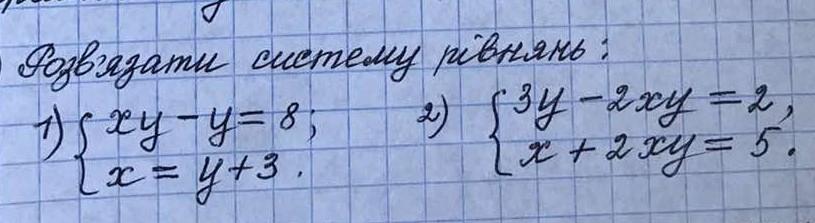 Розв'язати систему рівнянь:
1) { xy - y = 8; 2) { 3y - 2xy = 2,
x = y + 3. x + 2xy = 5.